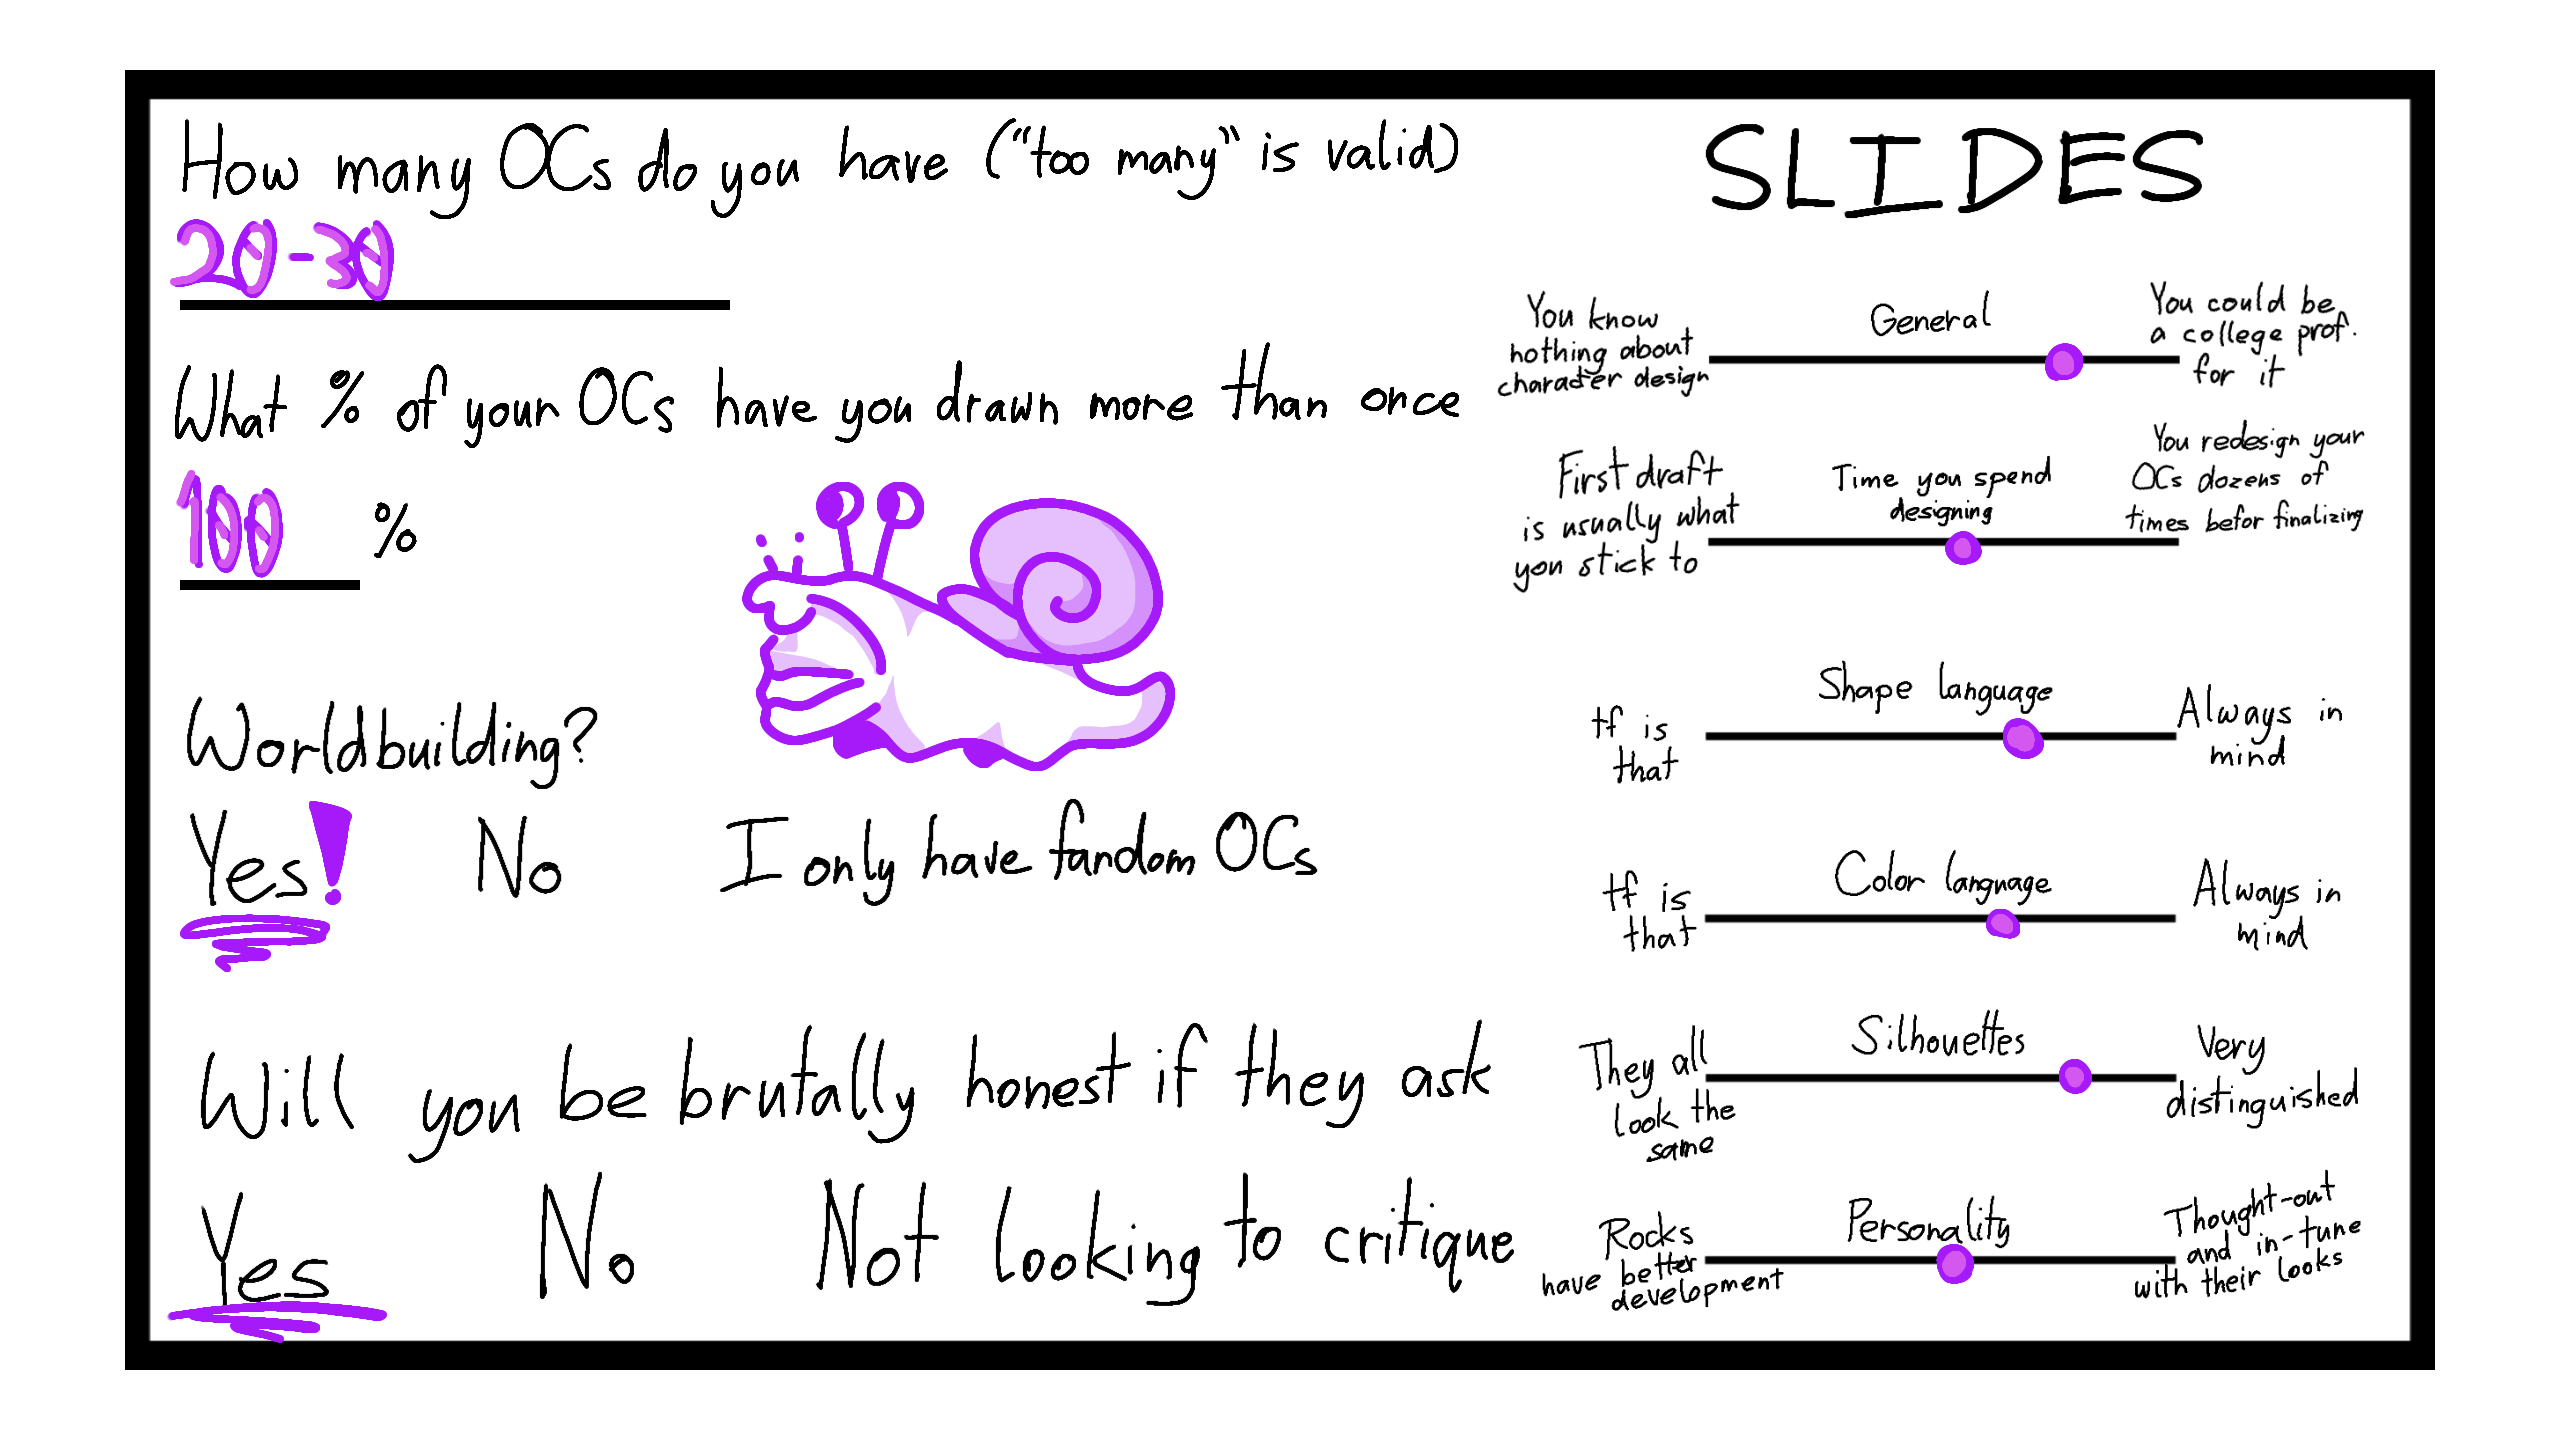 How many OCs do you have ("too many" is valid)
20-30
What % of your OCs have you drawn more than once
100 %
Worldbuilding?
Yes! No I only have fandom OCs
Will you be brutally honest if they ask
Yes No Not looking to critique
SLIDES
You know
nothing about
character design
General
You could be
a college prof.
for it
First draft
is usually what
you stick to
Time you spend
designing
You redesign your
OCs dozens of
times befor finalizing
tf is
that
Shape language
Always in
mind
tf is
that
Color language
Always in
mind
They all
look the
same
Silhouettes
Very
distinguished
Rocks
have better
development
Personality
Thought-out
and in-tune
with their looks